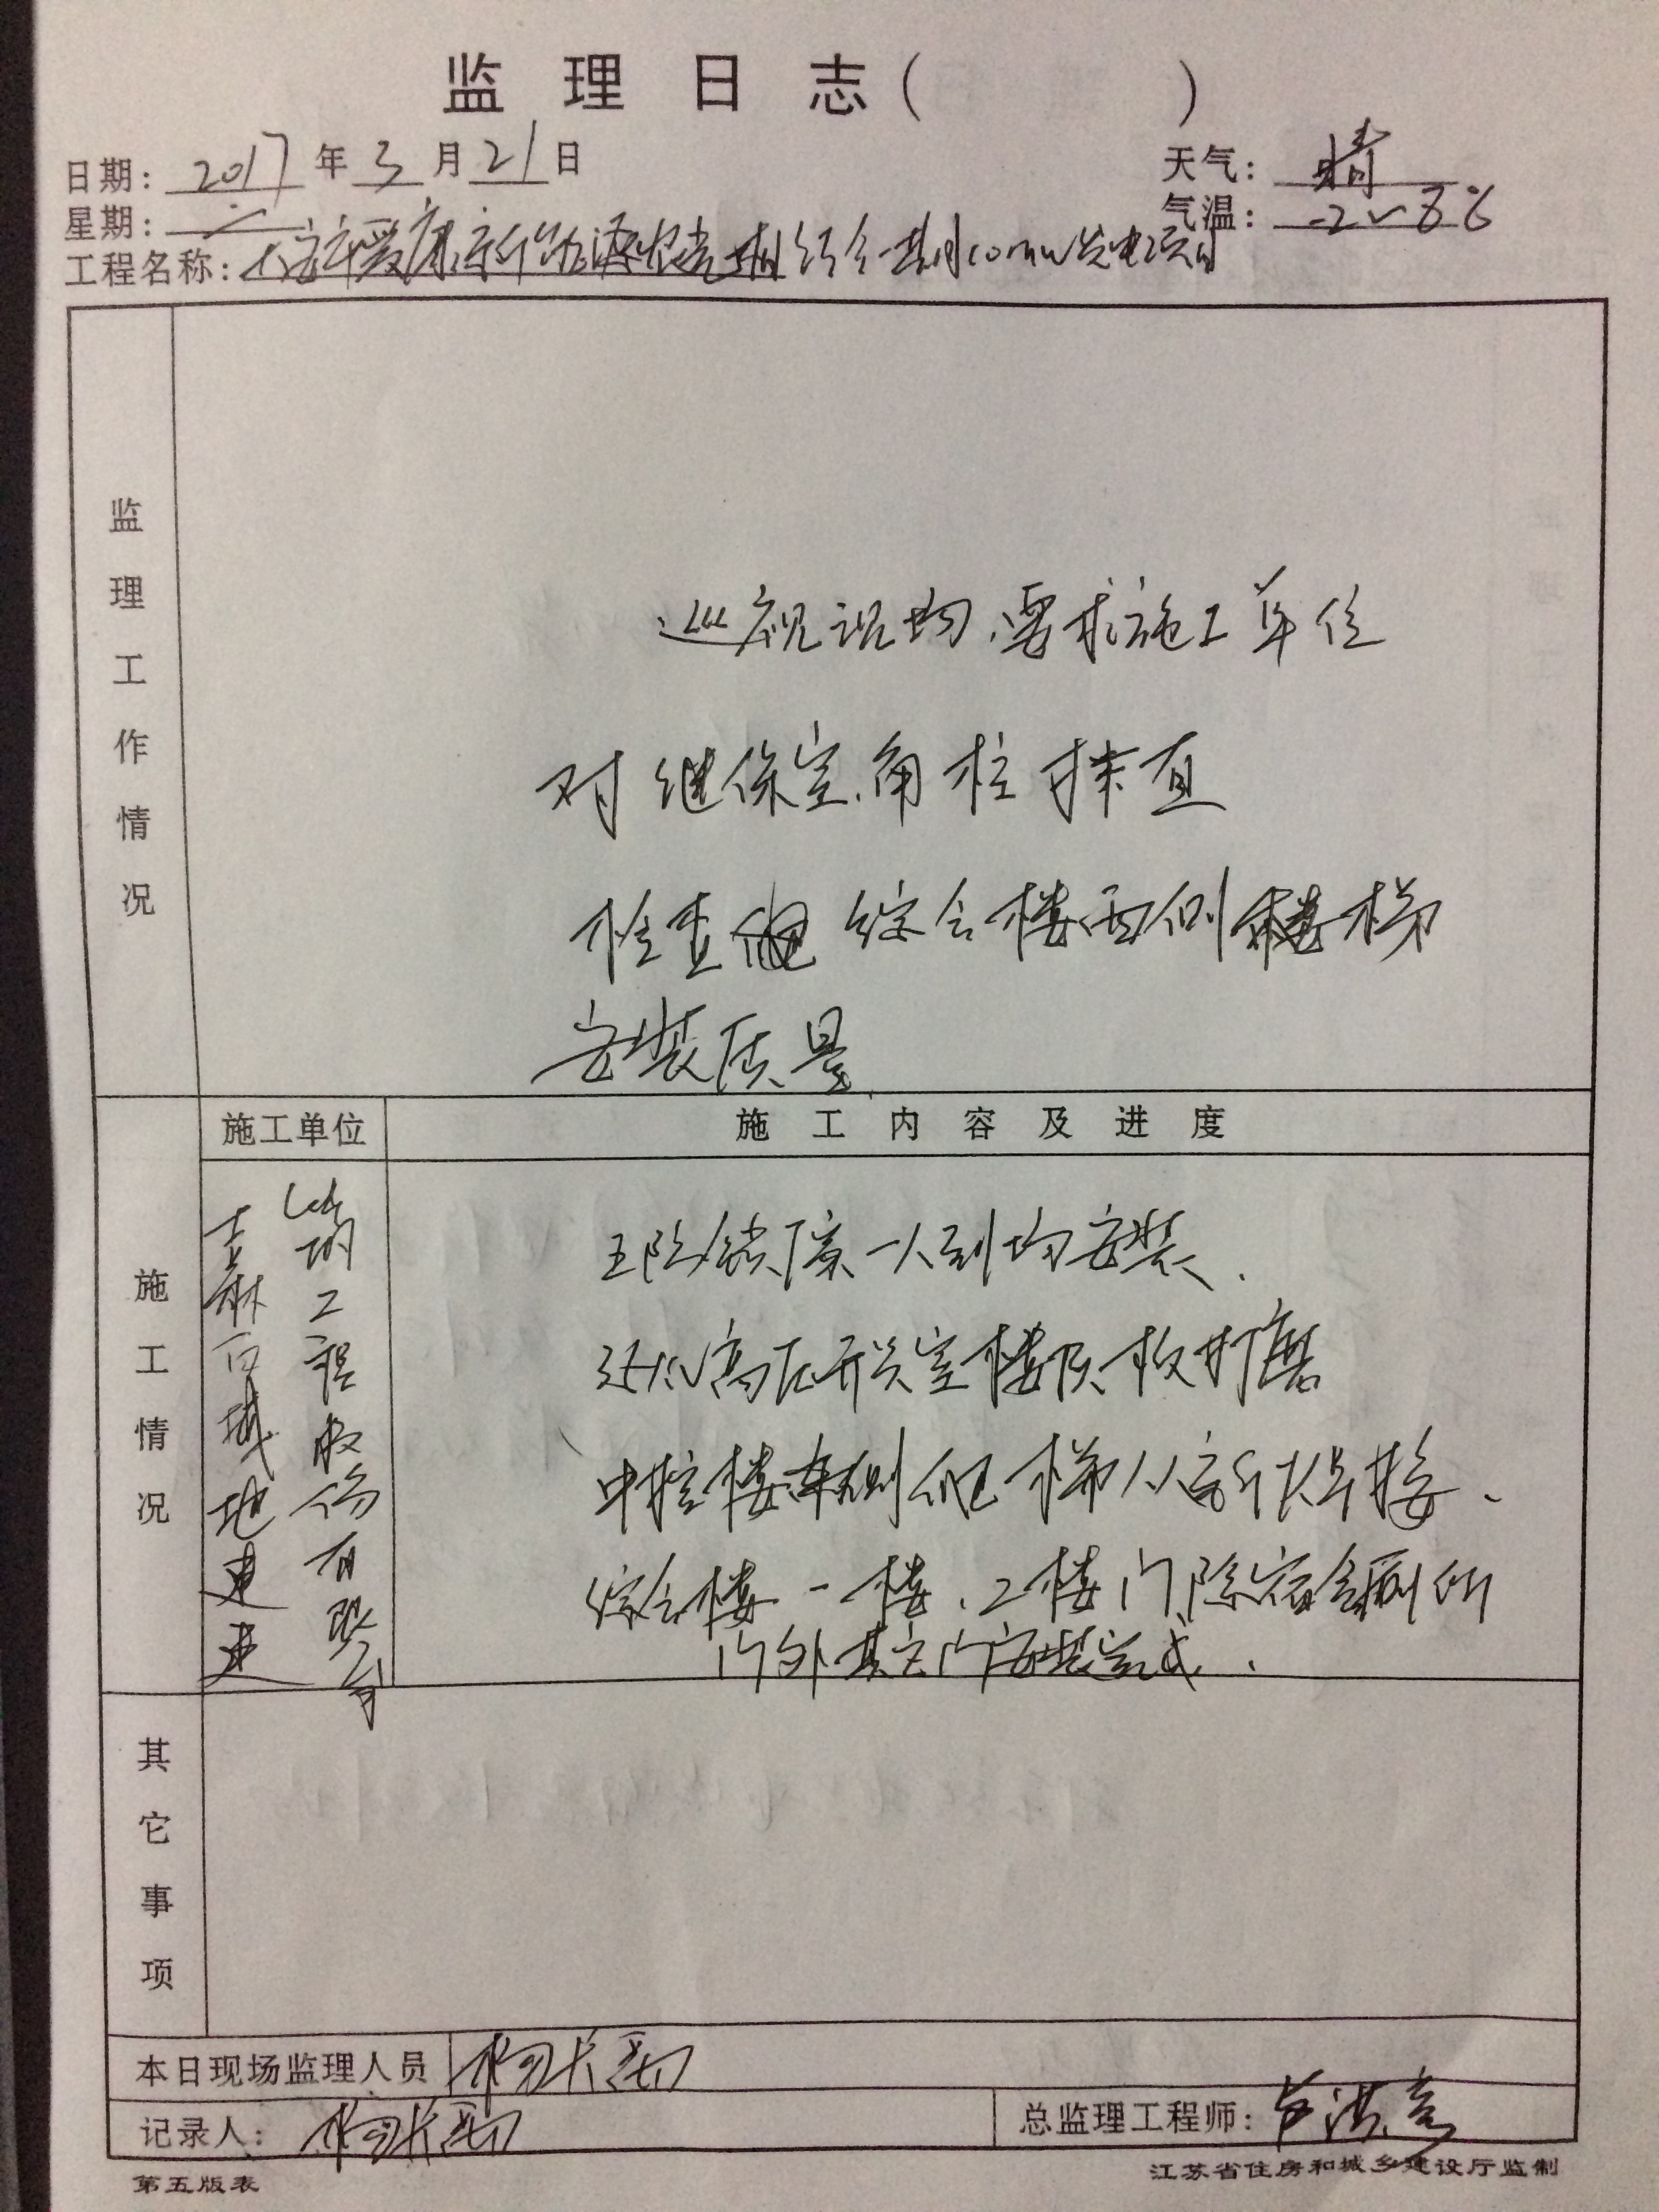 监理日志( )
日期: 2017 年 3 月 21 日
天气: 晴
星期: 二
气温: -2~8℃
工程名称: 大安市爱康新能源 10MW发电项目
监理工作情况
巡视现场,要求施工单位
对继保室角柱抹直
检查 综合楼西侧楼梯
安装质量
施工单位
施工内容及进度
施工情况
吉林百城地建建
筑工程股份有限公司
一人到场安装.
高压开关室楼顶板打磨
中控楼东侧爬梯 焊接、
综合楼一楼、2楼门除宿舍厕所
门外其它门安装完成.
其它事项
本日现场监理人员
记录人:
总监理工程师:
第五版表
江苏省住房和城乡建设厅监制